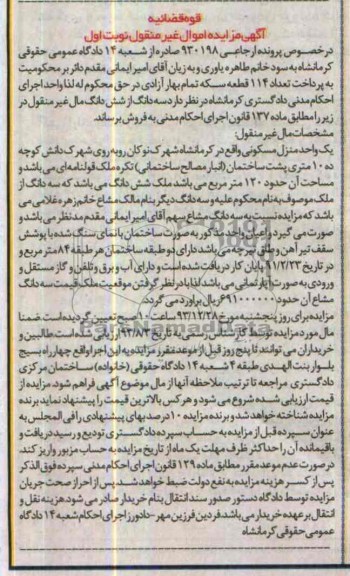 قوه قضائیه
آگهی مزایده اموال غیر منقول نوبت اول
در خصوص پرونده ارجاعی ۹۳۰۱۹۸ صادره از شعبه ۱۴ دادگاه عمومی حقوقی
کرمانشاه به سود خانم طاهره یاوری و به زیان آقای امیر ایمانی مقدم دائر بر محکومیت
به پرداخت تعداد ۱۱۴ قطعه سکه تمام بهار آزادی در حق محکوم له لذا واحد اجرای
احکام مدنی دادگستری کرمانشاه در نظر دارد سه دانگ از شش دانگ مال غیر منقول در
زیر را مطابق ماده ۱۳۷ قانون اجرای احکام مدنی به فروش برساند.
مشخصات مال غیر منقول:
یک واحد منزل مسکونی واقع در کرمانشاه شهرک نوکان روبه روی شهرک دانش کوچه
ده ۱۰ متری پشت ساختمان (انبار مصالح ساختمانی) تکره ملک قولنامه ای می باشد و
مساحت آن حدود ۱۲۰ متر مربع می باشد ملک شش دانگ می باشد که سه دانگ از
ملک موصوف به نام محکوم علیه و سه دانگ دیگر بنام مالک مشاع خانم زهره غلامی می
باشد که مزایده نسبت به سه دانگ مشاع سهم آقای امیر ایمانی مقدم مدنظر می باشد و
صورت می گیرد و اعیان واحد مذکور به صورت ساختمان با نمای سنگ شده با پوشش
سقف تیر آهن و طاق تیرچه می باشد دارای دو طبقه ساختمان هر طبقه ۸۴ متر مربع و
در تاریخ ۹۱/۲/۲۳ پایان کار دریافت شده است و دارای آب و برق و تلفن و گاز مستقل و
ورودی به صورت آپارتمانی می باشد لذا با در نظر گرفتن موقعیت ملک قیمت سه دانگ
مشاع آن حدود ۶۹۱۰۰۰۰۰۰ ریال برآورد می گردد.
مزایده برای روز پنجشنبه مورخ ۹۳/۱۲/۲۸ ساعت ۱۰ صبح تعیین گردیده است ضمنا
مال مورد مزایده توسط کارشناس رسمی به تاریخ ارزیابی شده است طالبین و
خریداران می توانند تا پنج روز قبل از موعد مقرر مزایده به این اجرا واقع چهارراه بسیج
بلوار بنت الهدی طبقه ۴ شعبه ۱۴ دادگاه حقوقی (خانواده) ساختمان مرکزی
دادگستری مراجعه تا ترتیب ملاحظه آنها از مال موضوع آگهی فراهم شود، مزایده از
قیمت ارزیابی شده شروع می شود و هر کس بالاترین قیمت را پیشنهاد نماید برنده
مزایده شناخته خواهد شد و برنده مزایده ۱۰ درصد بهای پیشنهادی را فی المجلس به
عنوان سپرده قبل از مزایده به حساب سپرده دادگستری تودیع و رسید دریافت و
باقیمانده آن را حداکثر ظرف مهلت یک ماه از تاریخ مزایده به حساب مزبور واریز کند.
در صورت عدم موعد مقرر مطابق ماده ۱۲۹ قانون اجرای احکام مدنی سپرده فوق الذکر
پس از کسر هزینه مزایده به نفع دولت ضبط خواهد شد. پس از احراز صحت جریان
مزایده توسط دادگاه دستور صدور سند انتقال بنام خریدار صادر می شود هزینه نقل و
انتقال بر عهده خریدار می باشد. فردین فرزین مهر - دادورز اجرای احکام شعبه ۱۴ دادگاه
عمومی حقوقی کرمانشاه